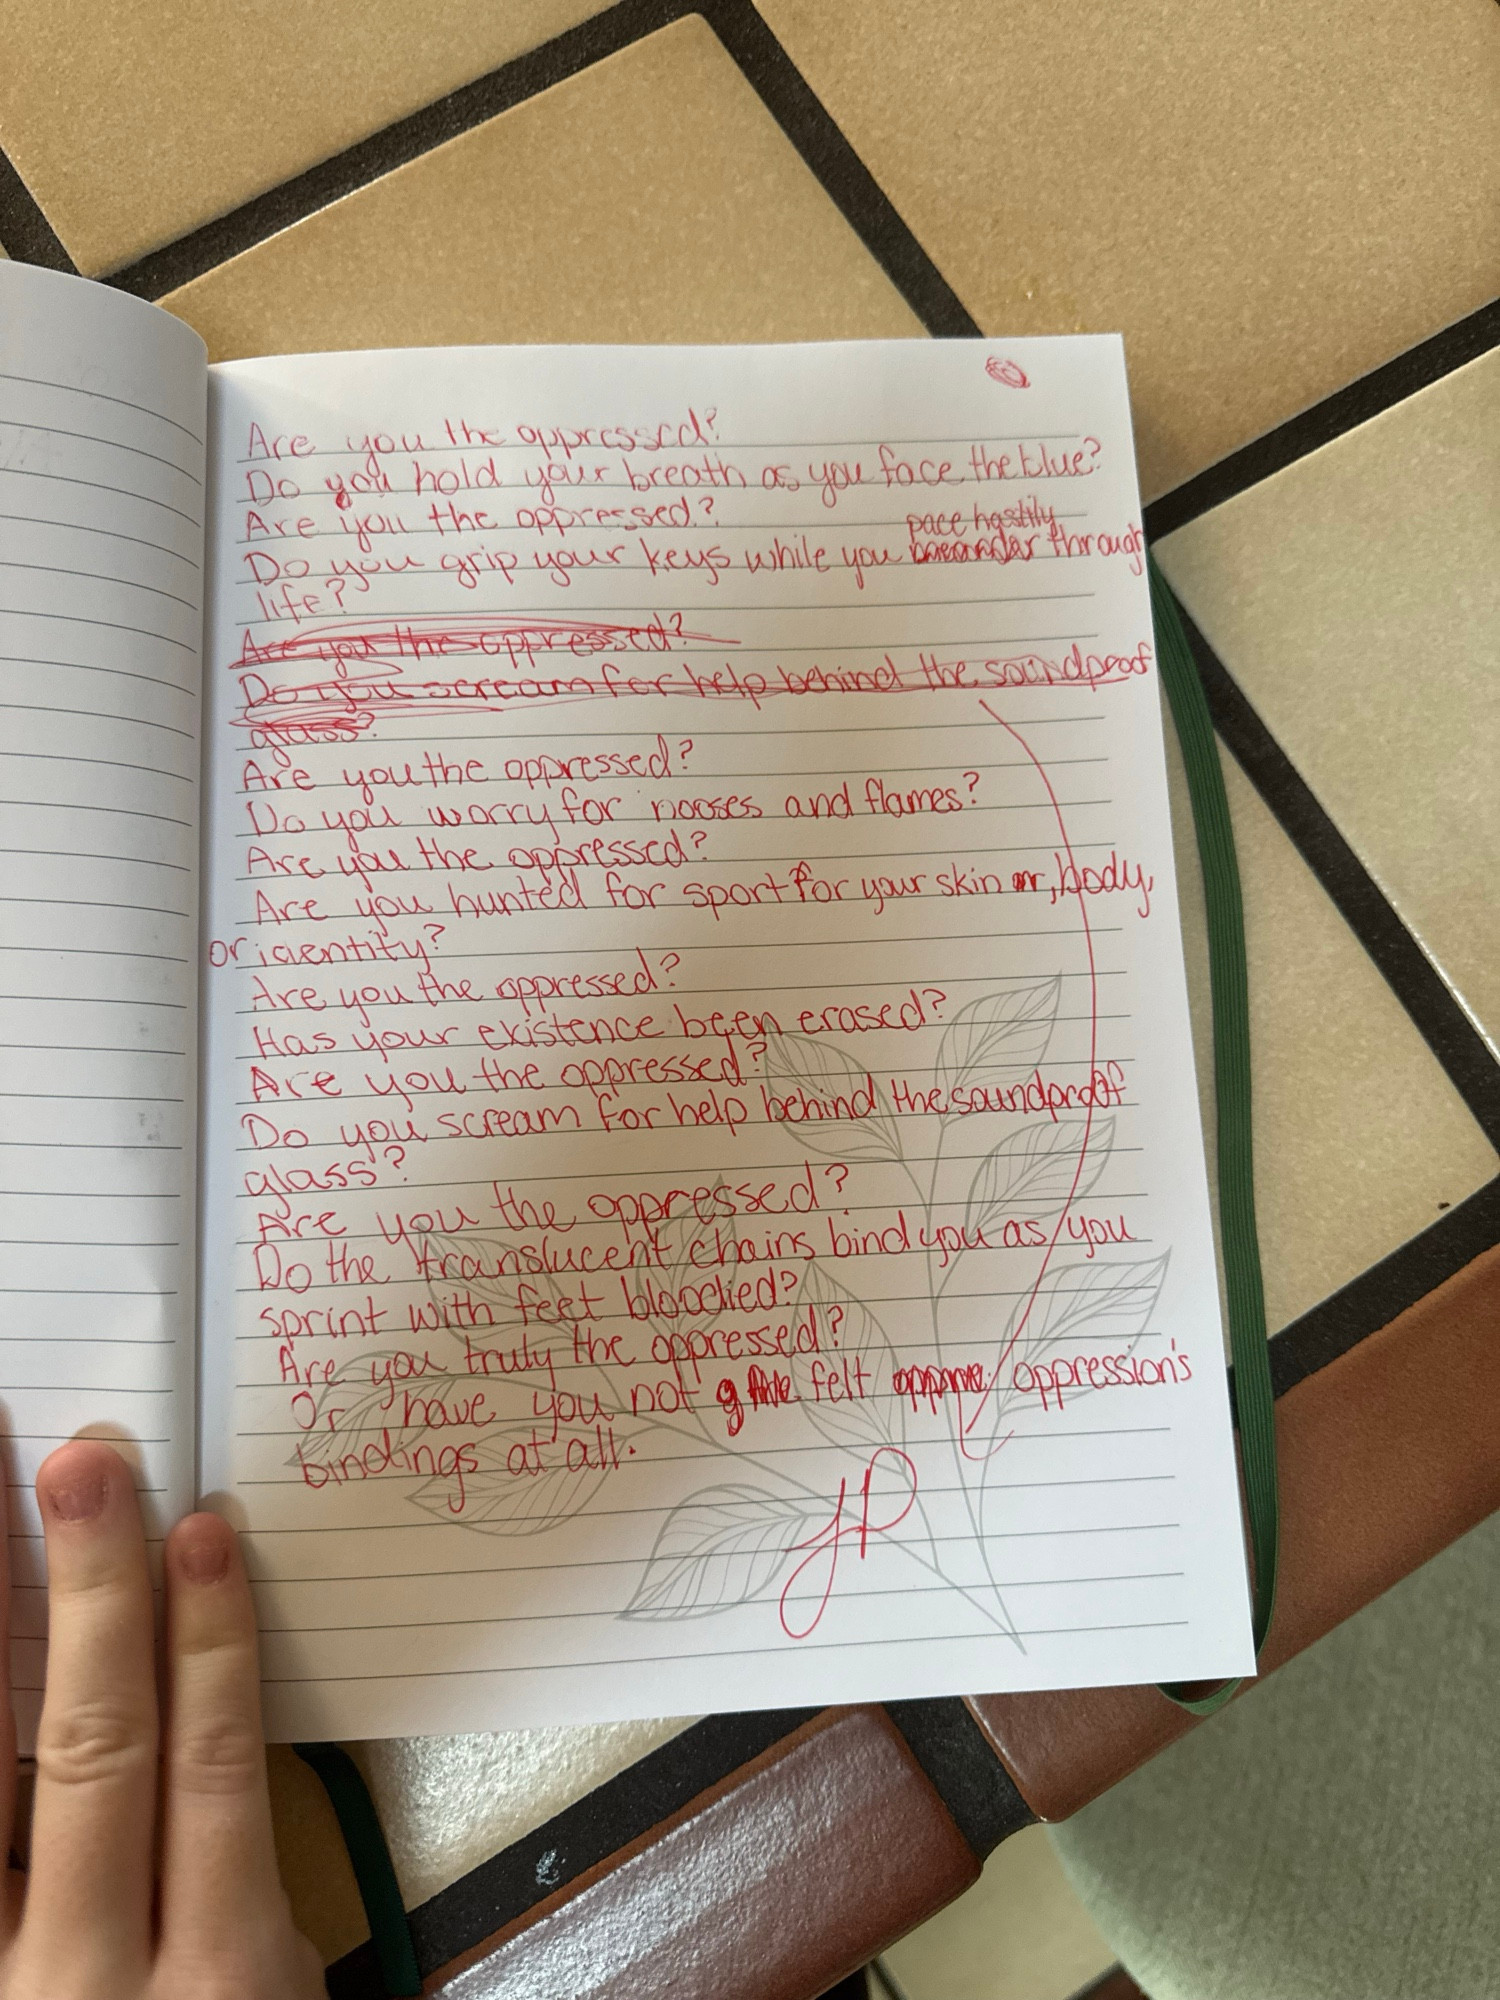 Are you the oppressed?
Do you hold your breath as you face the blue?
Are you the oppressed?
pace hastily
Do you grip your keys while you meander through
life?
Are you the oppressed?
Do you scream for help behind the soundproof
glass?
Are you the oppressed?
Do you worry for nooses and flames?
Are you the oppressed?
Are you hunted for sport for your skin or, body,
or identity?
Are you the oppressed?
Has your existence been erased?
Are you the oppressed?
Do you scream for help behind the soundproof
glass?
Are you the oppressed?
Do the translucent chains bind you as you
sprint with feet bloodied?
Are you truly the oppressed?
Or have you not felt oppression's
bindings at all.
JP